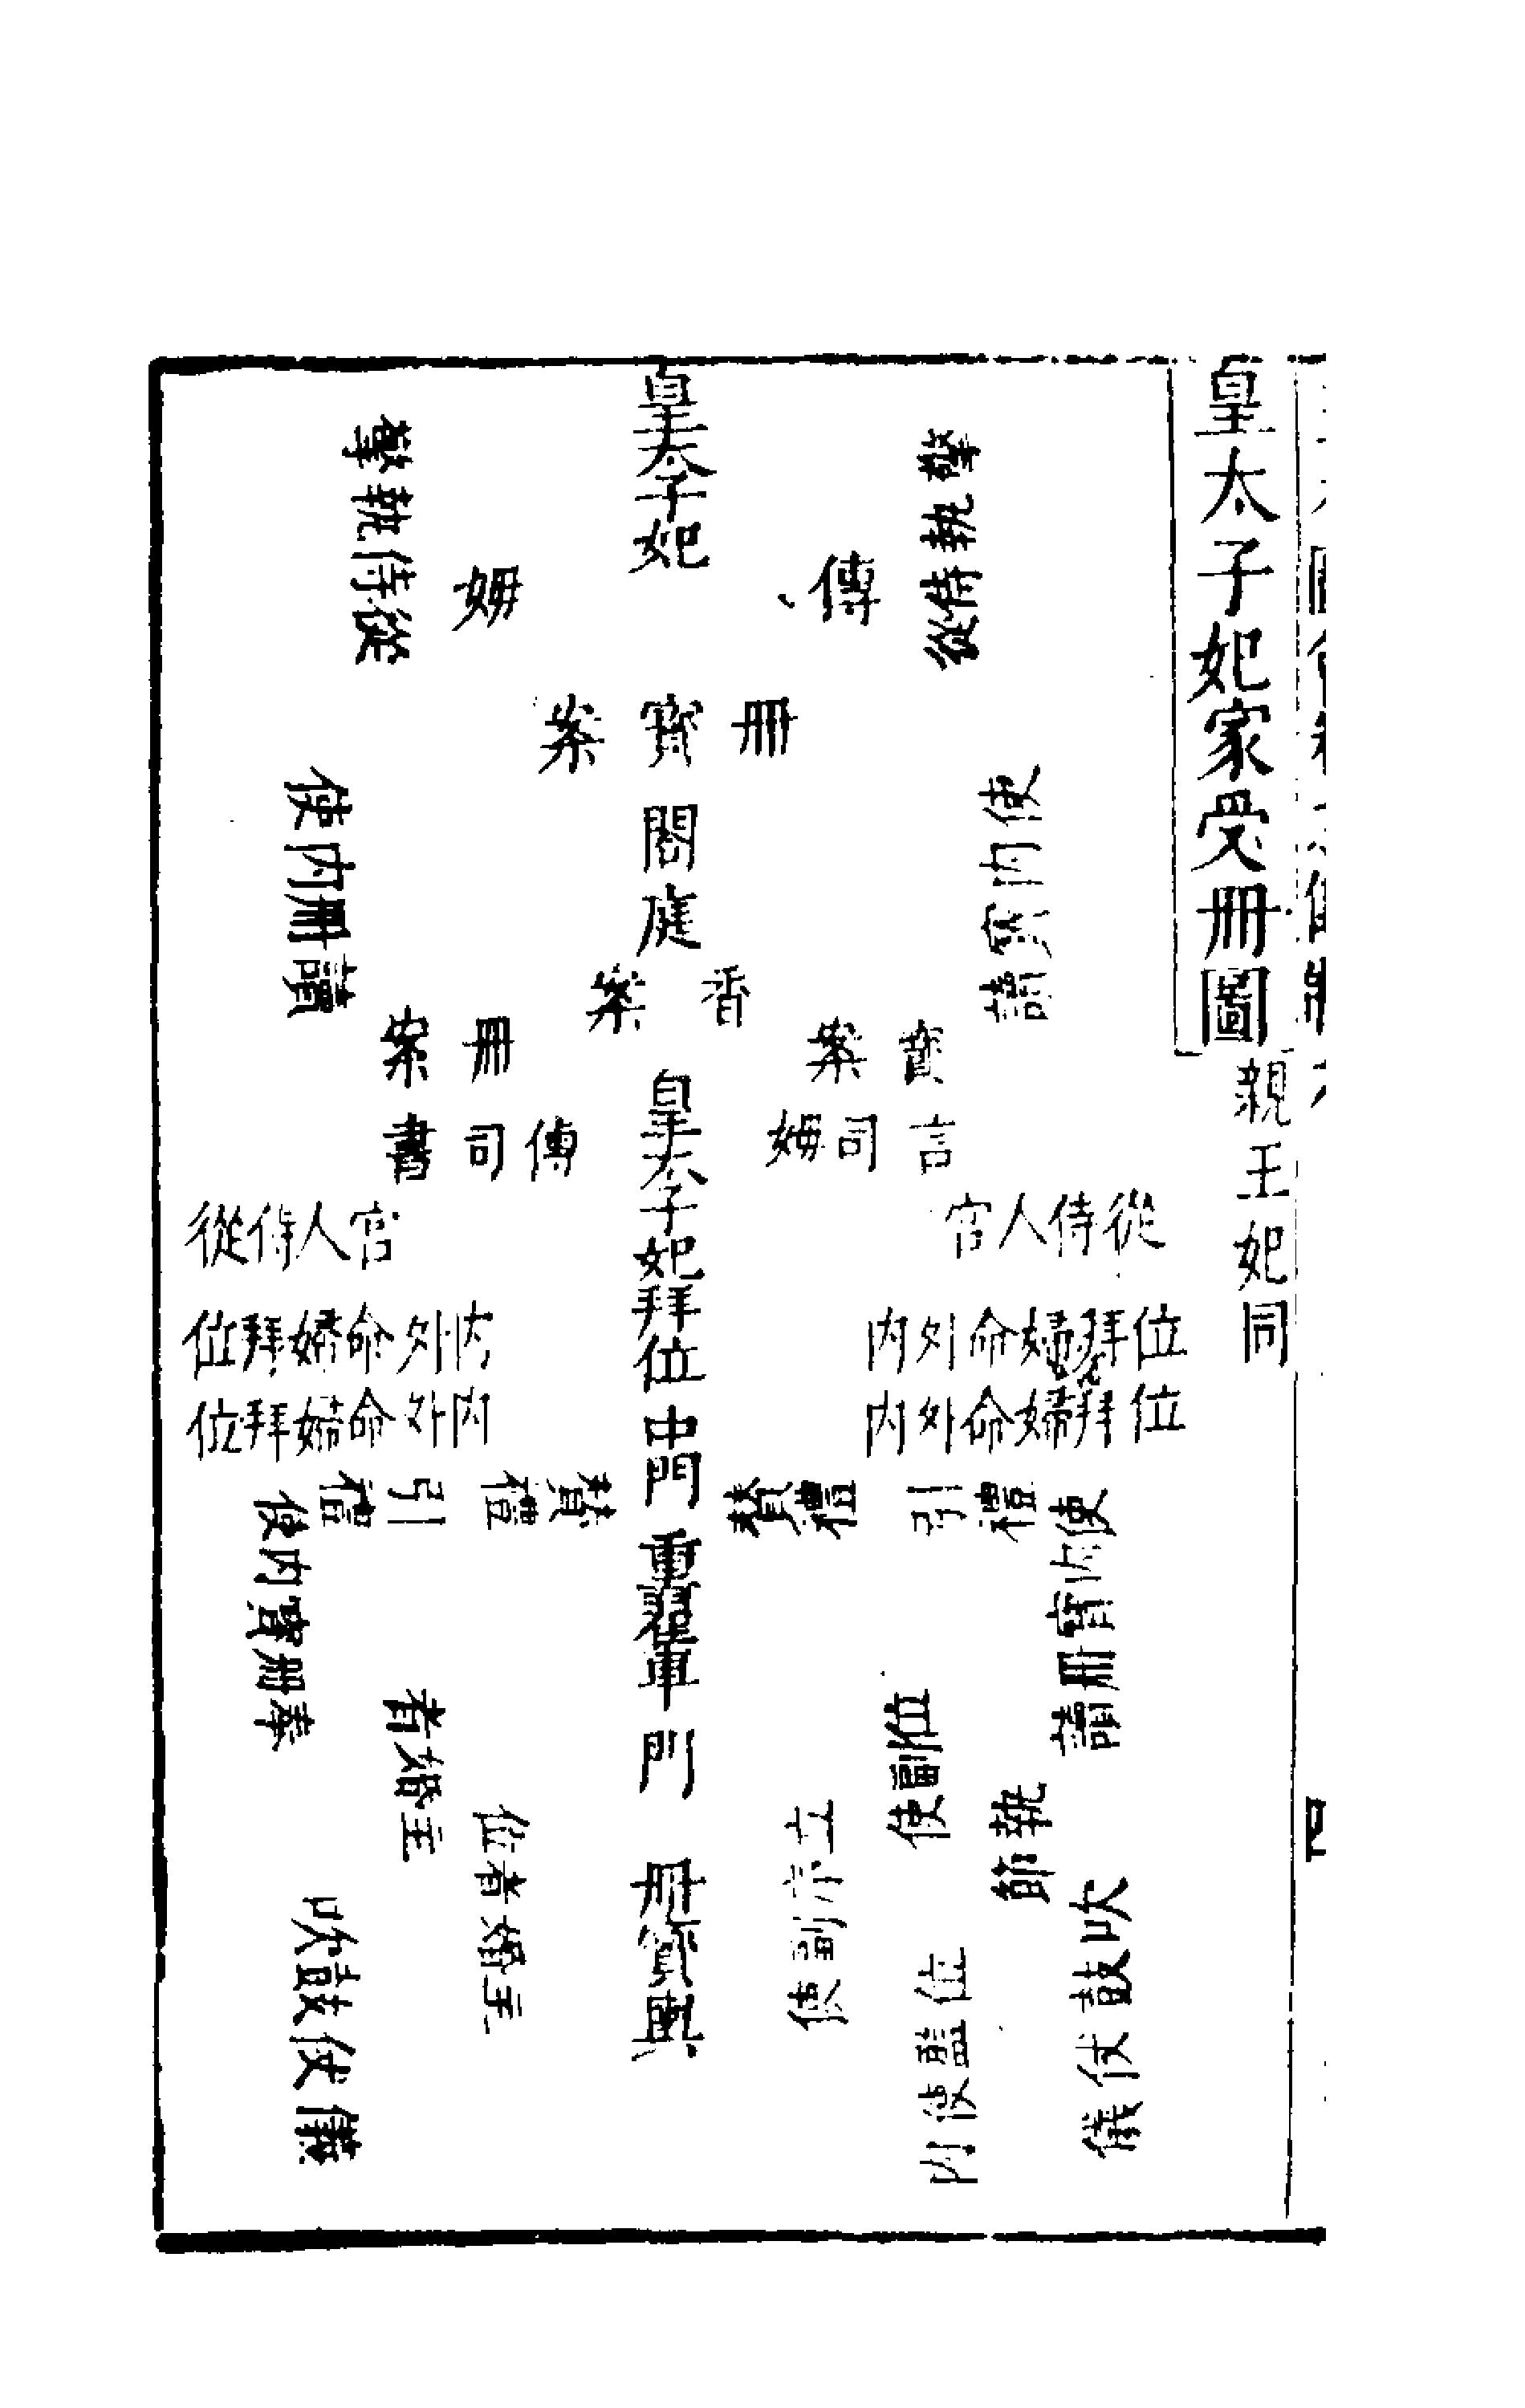 皇太子妃家受冊圖
親王妃同
皇太子妃
擎執侍從
擎執侍從
傳
姆
冊寶案
閤庭
讀寶內使
讀冊內使
香案
寶案
冊案
皇太子妃拜位
司言
姆
傳
司書
宮人侍從
宮人侍從
內外命婦拜位
內外命婦拜位
內外命婦拜位
內外命婦拜位
中門
引禮
贊禮
贊禮
引禮
重翟車
讀冊寶內使
奉冊寶內使
門
使副位
執節
主婚者
使副立
主婚者位
冊寶輿
內使監位
儀仗鼓吹
儀仗鼓吹
四